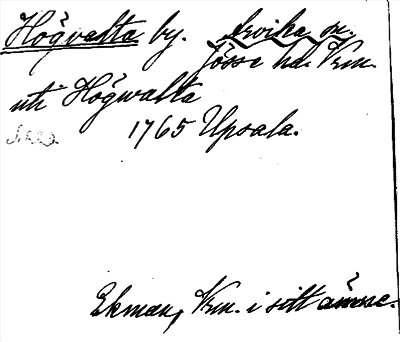 Högvalta by. Arvika sn.
Jösse hd. Vrm.
uti Högwalta
1765 Upsala.
Ekman, Vrm. i sitt ämne.